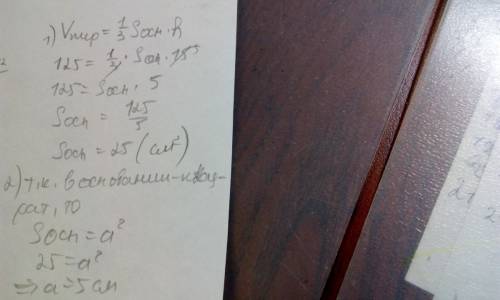 1) Vпир = 1/3 Sосн · h
125 = 1/3 · Sосн · 15⁵
125 = Sосн · 5
Sосн = 125/5
Sосн = 25 (см²)
2) т.к. в основании - квад-
рат, то
Sосн = a²
25 = a²
⇒ a = 5 см
2
21
2